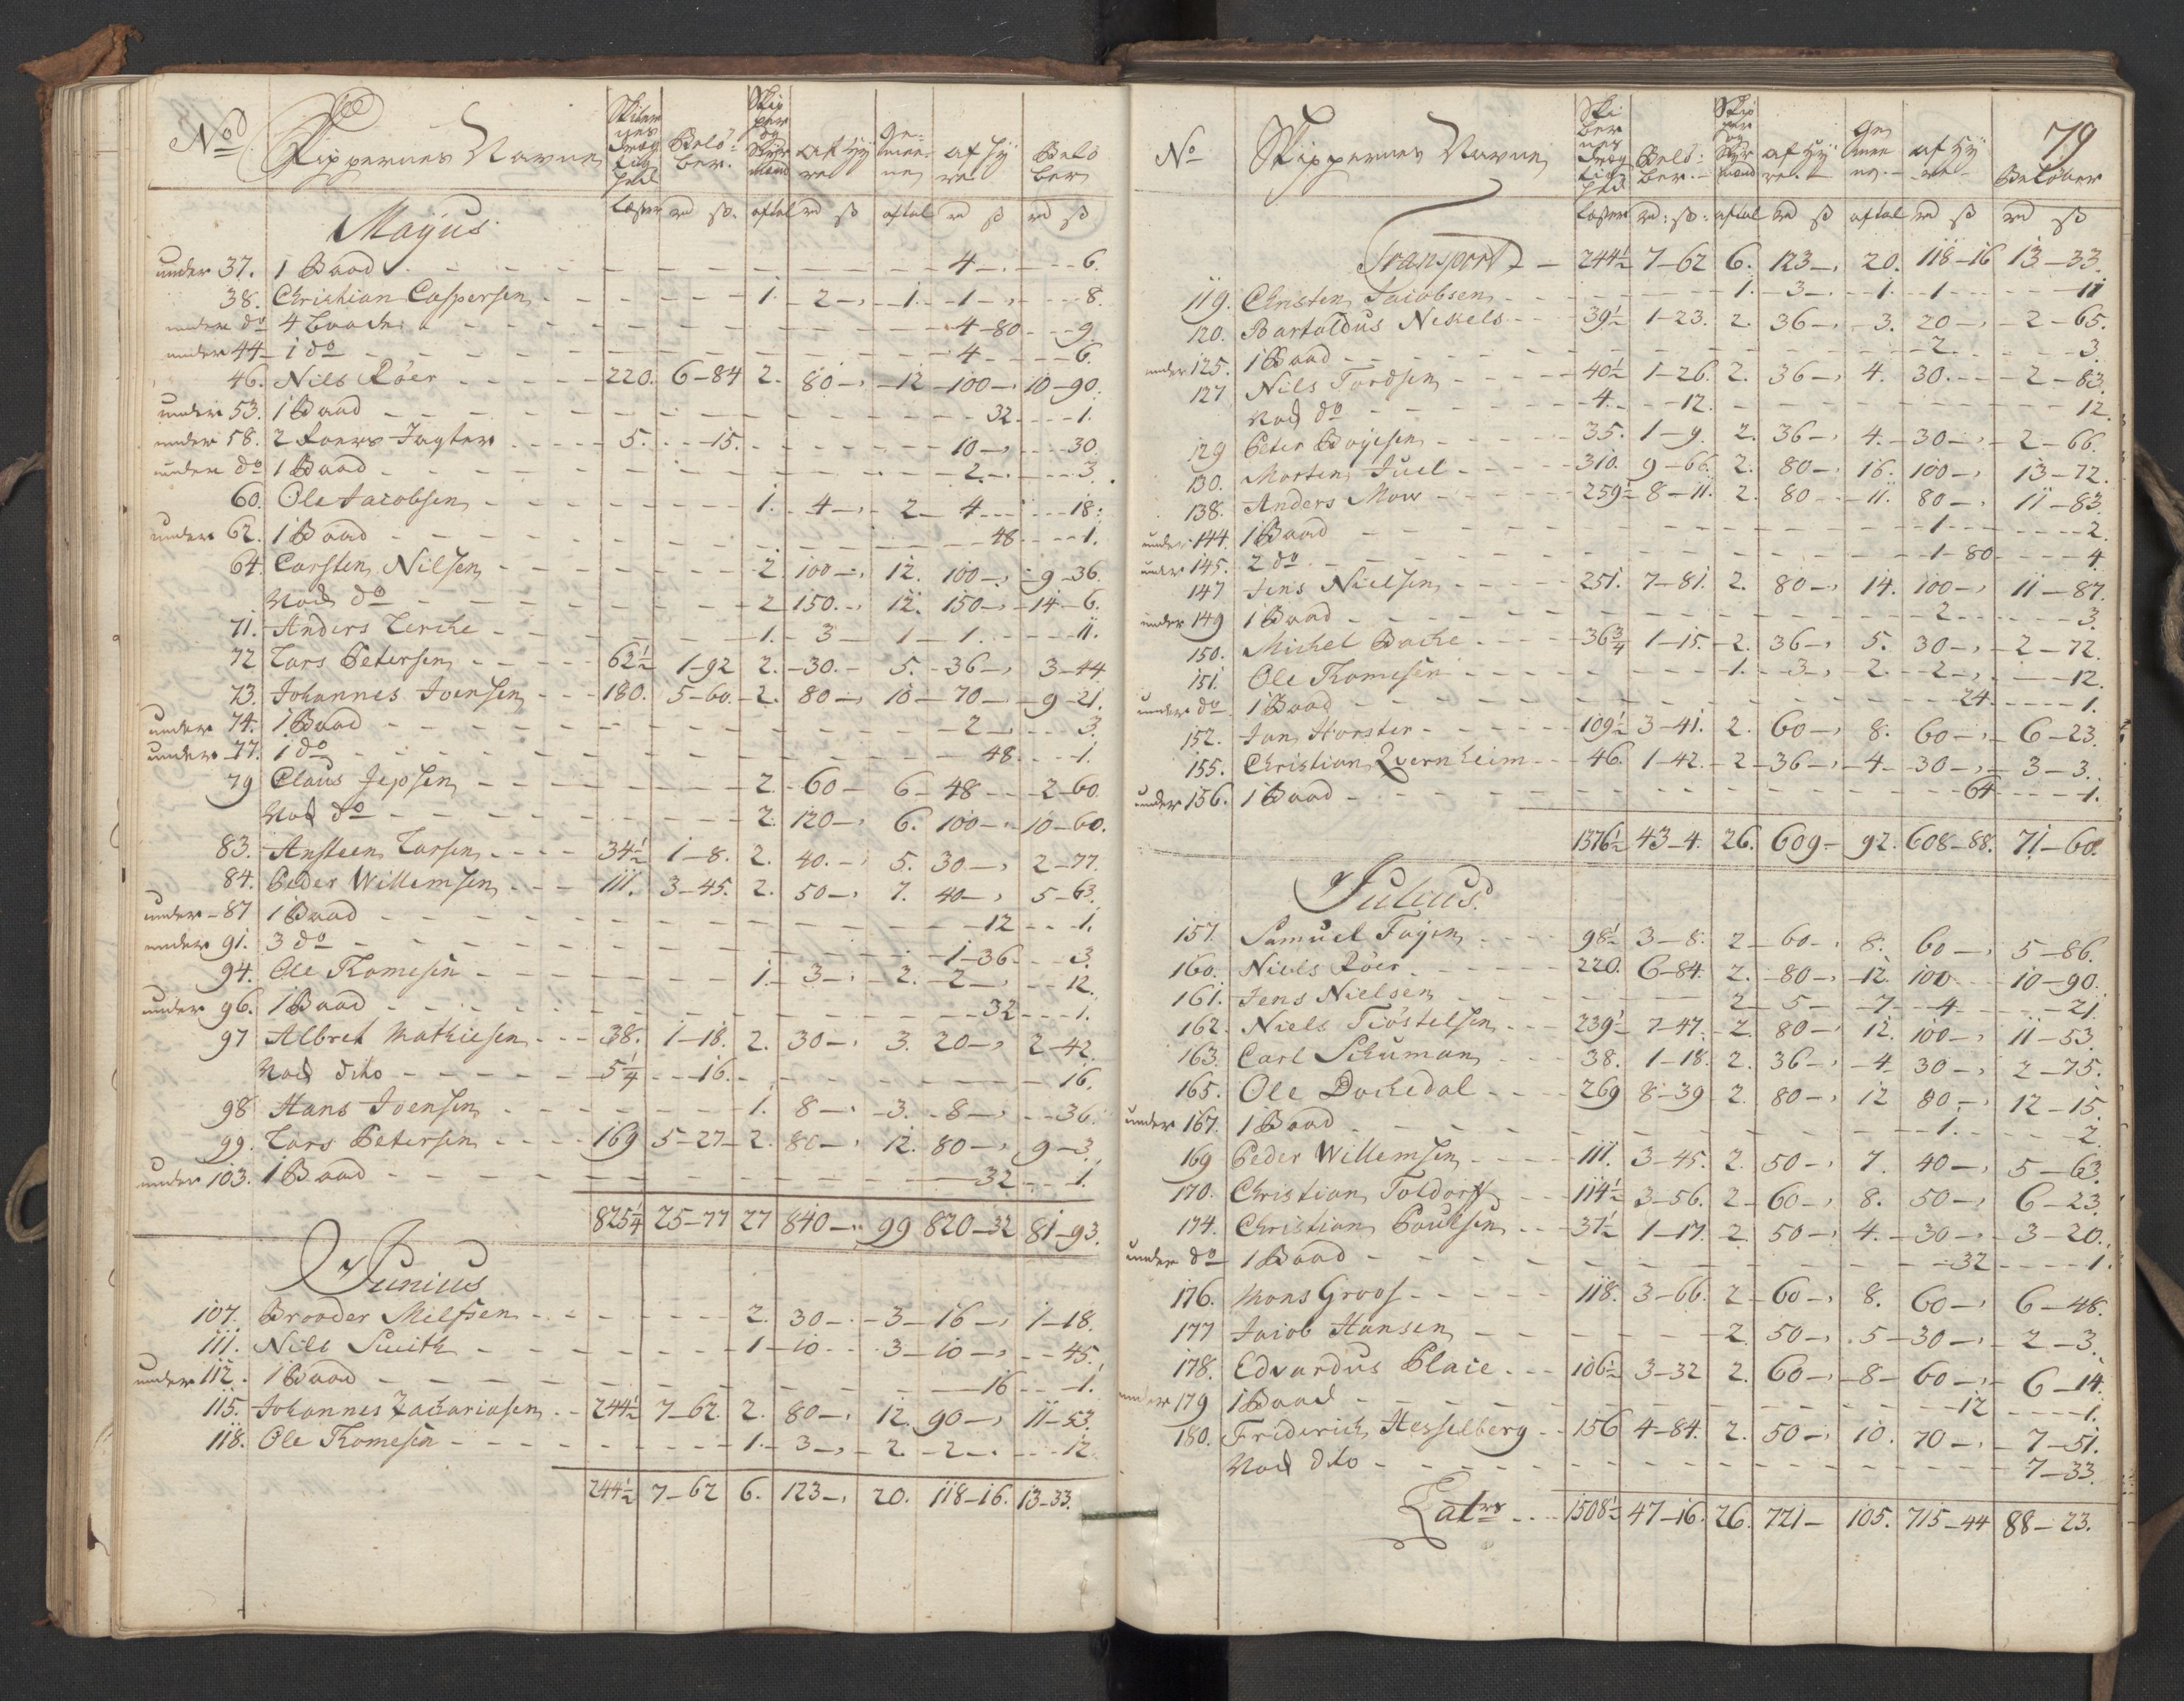 No Skippernes Navne Skibernes Drægtighed Belöber. Skipper og Styrmand af Hyre Gemeene af Hyre Belöber
Læster rd ss. aftal rd ss aftal rd ss rd ss
Mayus
under 37. 1 Baad 4 6.
38. Christian Caspersen 1. 2 1. 1 8.
under do 4 baade 4-80 9
under 44 1 do 4 6.
46. Nils Röer 220. 6-84 2. 80 12 100 10-90.
under 53. 1 Baad 32. 1.
under 58. 2 Roers Jagter 5. 15. 10 30.
under do 1 Baad 2 3.
60. Ole Jacobsen 1. 4 2 4 18.
under 62. 1 Baad 48 1.
64. Carsten Nilsen 2. 100 12. 100 9-36.
Nock do 2 150. 12. 150 14-6.
71. Anders Lerche 1. 3 1 1 11.
72 Lars Petersen 62½ 1-92 2. 30. 5. 36 3-44
73. Johannes Ivensen 180. 5-60. 2. 80 10 70 9-21.
under 74. 1 Baad 2 3.
under 77. 1 do 48. 1.
79 Claus Jepsen 2. 60 6 48 2-60.
Nock do 2. 120 6. 100 10-60.
83. Ansteen Larsen 34½ 1-8. 2. 40. 5. 30 2-77.
84. Peder Willemsen 111. 3-45. 2. 50 7. 40 5-63.
under 87 1 Baad 12 1.
under 91. 3 do 1-36. 3.
94. Ole Thomesen 1. 3 2. 2 12.
under 96. 1 Baad 32 1.
97 Albret Mathiesen 38. 1-18. 2. 30 3. 20 2-42.
Nock dito 5¼ 16. 16.
98 Hans Ivensen 1. 8 3. 8 36.
99. Lars Petersen 169 5-27 2. 80 12. 80 9-3.
under 103. 1 Baad 32 1.
825¼ 25-77 27 840 99 820-32 81-93.
Junius
107. Brooder Milssen 2. 30 3 16 1-18.
111. Nils Smith 1 10 3 10 45.
under 112. 1 Baad 16 1.
115. Johannes Zachariasen 244½ 7-62. 2. 80 12. 90 11-53.
118. Ole Thomesen 1. 3 2. 2 12
244½ 7-62 6. 123 20. 118-16. 13-33.
79
No Skippernes Navne Skibernes Drægtighed Belöber. Skipper og Styrmand af Hyre Gemeene af Hyre Belöber
Læster rd: ss: aftal rd ss aftal rd ss rd ss
Transport 244½ 7-62 6. 123 20. 118-16 13-33.
119. Christen Jacobsen 1. 3 1. 1 11
120. Bartoldus Nekels 39½ 1-23. 2. 36 3. 20 2-65.
under 125. 1 Baad 2. 3.
127 Nils Tordsen 40½ 1-26. 2. 36 4. 30. 2-83.
Nock do 4. 12. 12.
129 Peter Boyesen 35. 1-9. 2. 36 4. 30 2-66.
130. Morten Juel 310. 9-66. 2. 80 16. 100 13-72.
138. Anders Mow 259½ 8-11. 2. 80 11. 80 11-83.
under 144. 1 Baad 1 2.
under 145. 2 do 1-80 4
147 Jens Nielsen 251. 7-81. 2. 80 14. 100 11-87.
under 149 1 Baad 2 3.
150. Michel Bache 36¾ 1-15. 2. 36 5. 30 2-72.
151. Ole Thomesen 1. 3 2. 2 12.
under do 1 Baad 24. 1.
152. Jan Horster 109½ 3-41. 2. 60 8. 60 6-23.
155. Christian Qvernheim 46. 1-42. 2 36 4 30 3-3.
under 156. 1 Baad 64 1.
1376½ 43-4. 26. 609 92. 608-88. 71-60.
Julius
157. Samuel Fagen 98½ 3-8. 2 60 8. 60 5-86.
160. Niels Röer 220. 6-84. 2. 80 12. 100 10-90.
161. Jens Nielsen 2 5 7. 4 21.
162. Niels Tiöstelsen 239½ 7-47. 2. 80 12. 100 11-53.
163. Carl Schuman 38. 1-18. 2. 36 4 30 2-75.
165. Ole Dockedal 269 8-39 2. 80 12 80 12-15.
under 167. 1 Baad 1. 2.
169 Peder Willemsen 111. 3-45. 2. 50 7. 40 5-63.
170. Christian Toldorff 114½ 3-56. 2 60 8. 50 6-23.
174. Christian Poulsen 37½ 1-17. 2. 50 4. 30 3-20.
under do 1 Baad 32 1.
176. Mons Groos 118. 3-66. 2 60 8. 60 6-48.
177 Jacob Hansen 2. 50 5 30 2-3.
178. Edvardus Place 106½ 3-32 2. 60 8 60 6-14.
under 179 1 Baad 12 1.
180. Friderich Hesselberg 156 4-84. 2. 50 10. 70 7-51.
Nock dito 7-33.
Latrs 1508½ 47-16. 26. 721 105. 715-44 88-23.